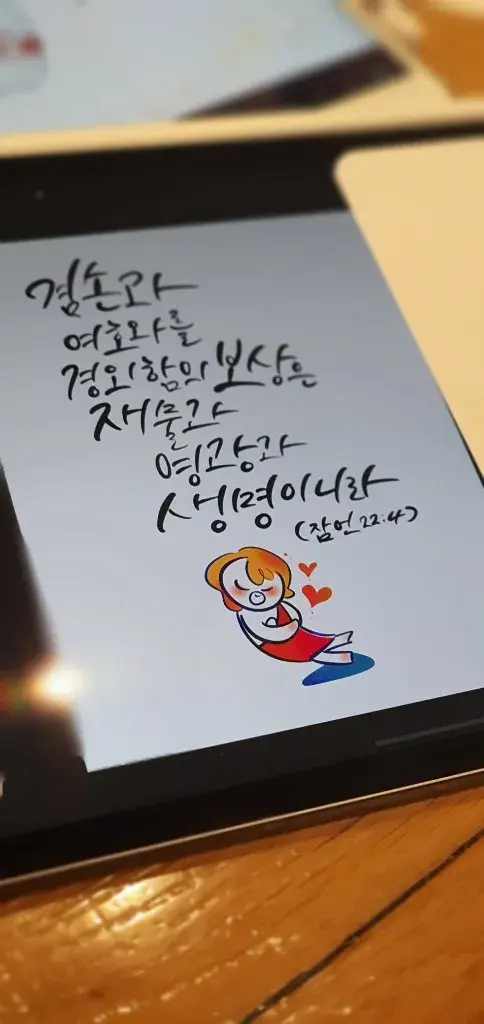 겸손과
여호와를
경외함의 보상은
재물과
영광과
생명이니라
(잠언 22:4)